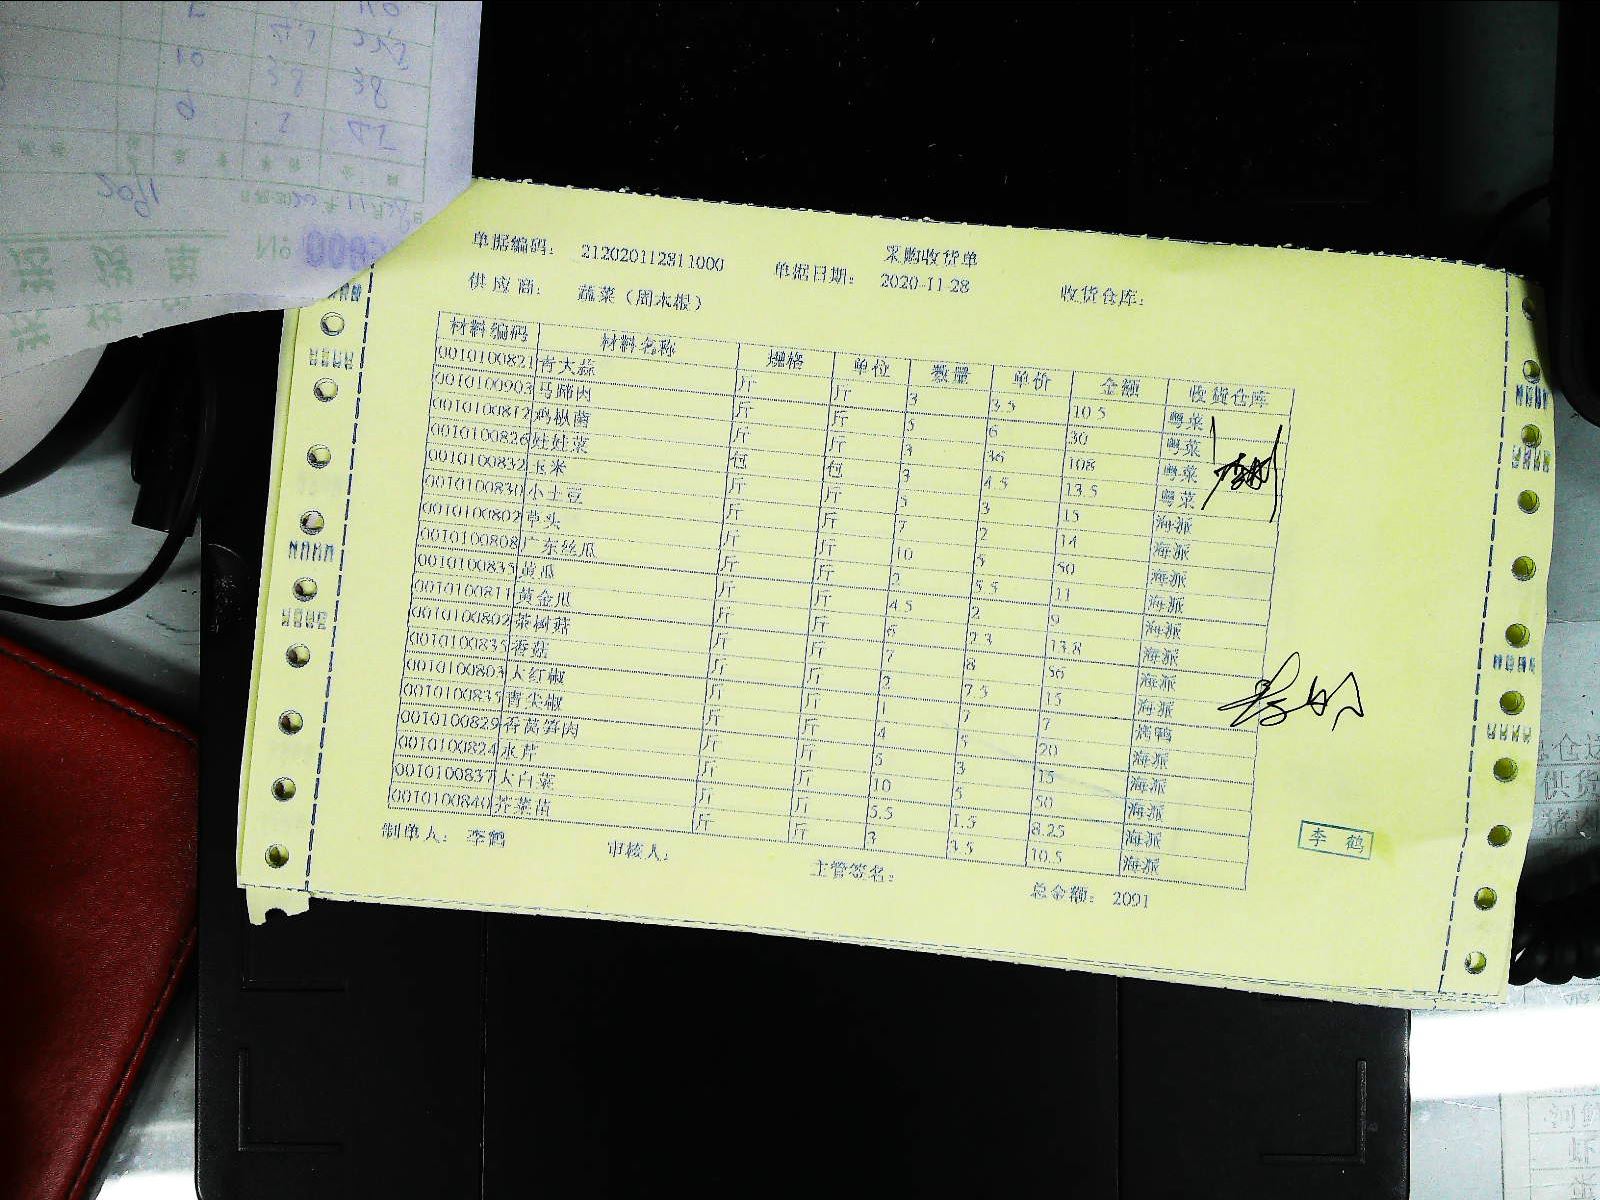 采购收货单
单据编码: 212020112811000 单据日期: 2020-11-28 收货仓库:
供应商: 蔬菜(周木根)
材料编码 材料名称 规格 单位 数量 单价 金额 收货仓库
0010100821 青大蒜 斤 斤 3 3.5 10.5 粤菜
0010100903 马蹄肉 斤 斤 5 6 30 粤菜
0010100812 鸡枞菌 斤 斤 3 36 108 粤菜
0010100826 娃娃菜 包 包 3 4.5 13.5 粤菜
0010100832 玉米 斤 斤 5 3 15 海派
0010100830 小土豆 斤 斤 7 2 14 海派
0010100802 草头 斤 斤 10 5 50 海派
0010100808 广东丝瓜 斤 斤 2 5.5 11 海派
0010100835 黄瓜 斤 斤 4.5 2 9 海派
0010100811 黄金瓜 斤 斤 6 2.3 13.8 海派
0010100802 茶树菇 斤 斤 7 8 56 海派
0010100835 香菇 斤 斤 2 7.5 15 海派
0010100803 大红椒 斤 斤 1 7 7 烤鸭
0010100835 青尖椒 斤 斤 4 5 20 海派
0010100829 香莴笋肉 斤 斤 5 3 15 海派
0010100824 水芹 斤 斤 10 5 50 海派
0010100837 大白菜 斤 斤 5.5 1.5 8.25 海派
0010100840 芥菜苗 斤 斤 3 3.5 10.5 海派
制单人: 李鹤 审核人: 主管签名: 总金额: 2091
李鹤